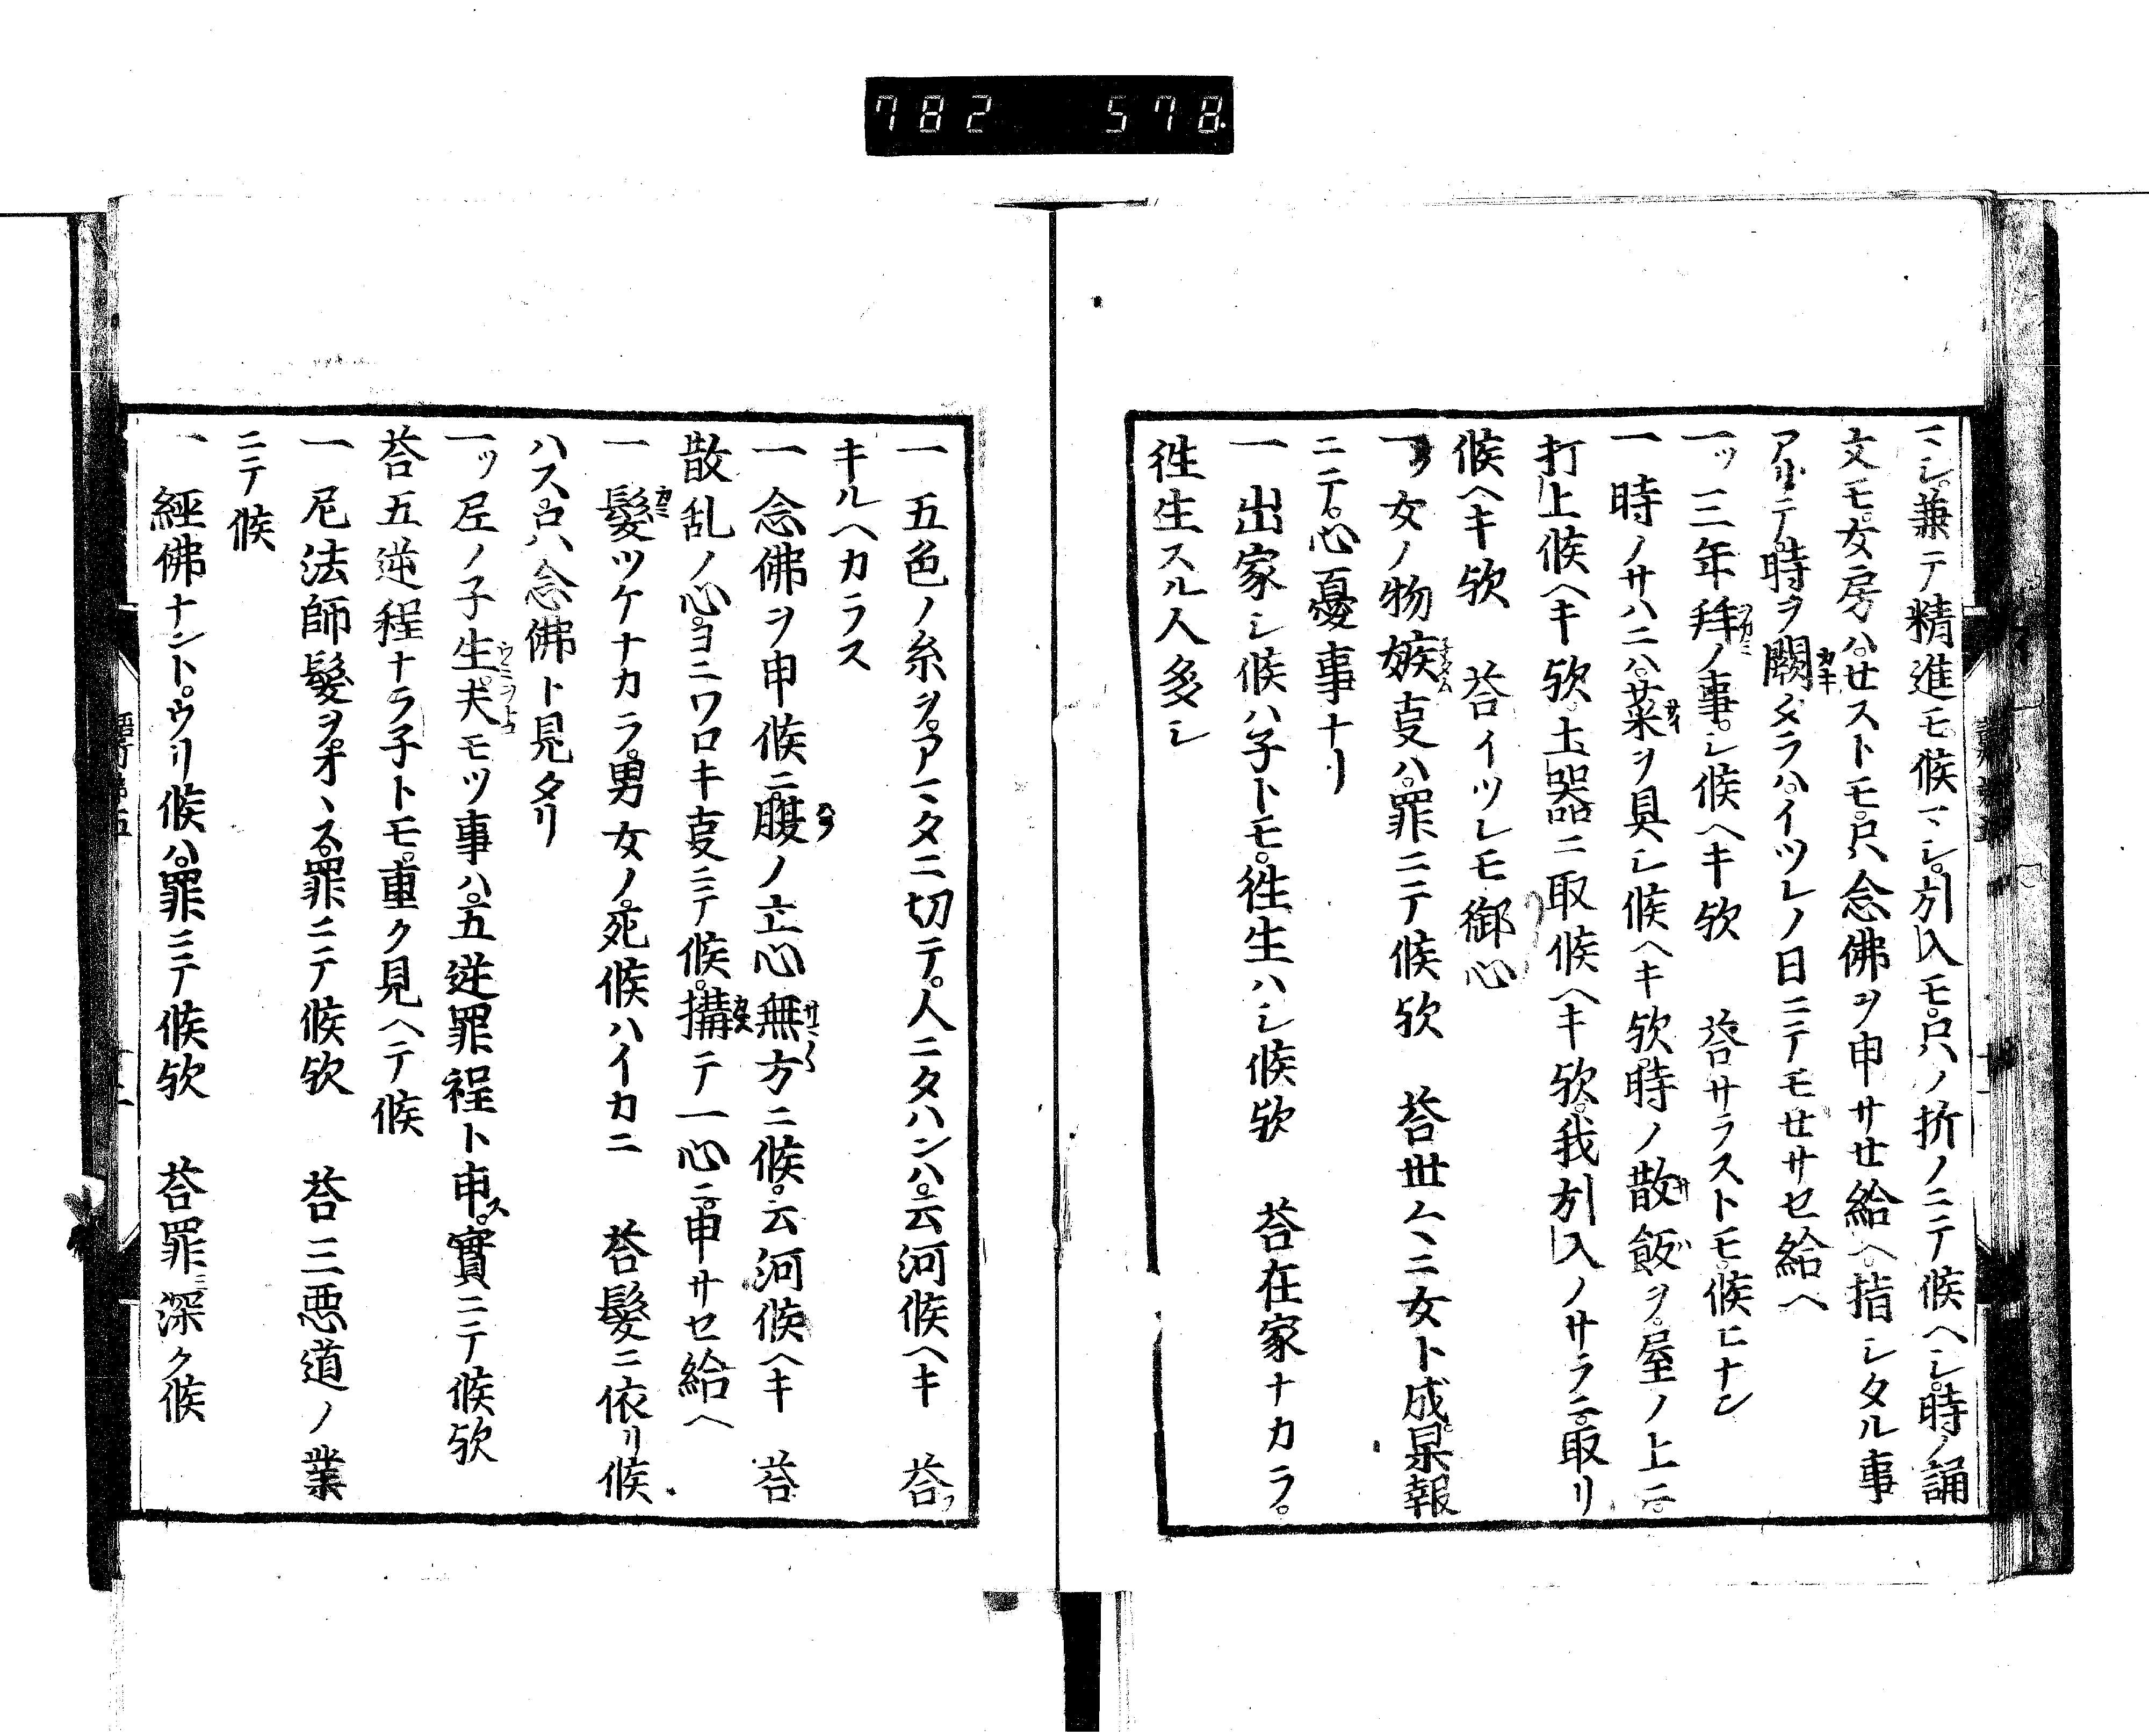 782 578
マシ。兼テ精進モ候マシ。引入モ。只ノ折ノニテ候ヘシ。時ノ誦
文モ。女房ハ。せストモ。只念佛ヲ申サせ給ヘ。指シタル事
アリテ。時ヲ闕タラハ。イツレノ日ニテモせサセ給ヘ
一ツ三年拜ノ事。シ候ヘキ欤 荅サラストモ。候ヒナン
一 時ノサハニハ。菜ヲ具シ候ヘキ欤。時ノ散飯ヲ。屋ノ上ニ。
打上候ヘキ欤。土器ニ取候ヘキ欤。我引入ノサラニ。取リ
候ヘキ欤 荅イツレモ御心
一ツ女ノ物嫉支ハ。罪ニテ候欤 荅世々ニ女ト成。果報
ニテ。心憂事ナリ
一 出家シ候ハ子トモ。徃生ハシ候欤 荅在家ナカラ。
徃生スル人多シ
一 五色ノ糸ヲ。アマタニ切テ。人ニタハンハ。云河候ヘキ 荅フ
キルヘカラス
一 念佛ヲ申候ニ。腹ノ立心無方ニ候。云河候ヘキ 荅
散乱ノ心。ヨニワロキ支ニテ候。搆テ一心ニ。申サセ給ヘ
一 髮ツケナカラ。男女ノ。死候ハイカニ 荅髮ニ依リ候
ハス。只ハ念佛ト見タリ
一ツ尼ノ子生。夫モツ事ハ。五逆罪程ト申ス。實ニテ候欤
荅五逆程ナラ子トモ。重ク見ヘテ候
一 尼法師髮ヲ。オヽス。罪ニテ候欤 荅三悪道ノ業
ニテ候
一 經佛ナント。ウリ候ハ。罪ニテ候欤 荅罪ニ深ク候